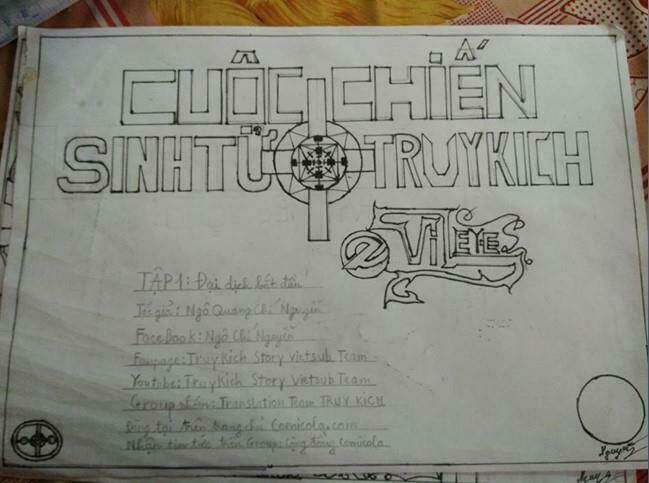 CUỘC CHIẾN
SINH TỬ TRUY KICH
EVIL EYES
TẬP 1: Đại dịch bắt đầu
Tác giả: Ngô Quang Chí Nguyễn
Facebook: Ngô Chí Nguyễn
Fanpage: Truy Kich Story Vietsub Team
Youtube: Truy Kich Story Vietsub Team
Group nhóm: Translation Team TRUY KÍCH
Đăng tại trên trang chủ Comicola.com
Nhận tin tức trên Group: Cộng đồng Comicola
Nguyễn